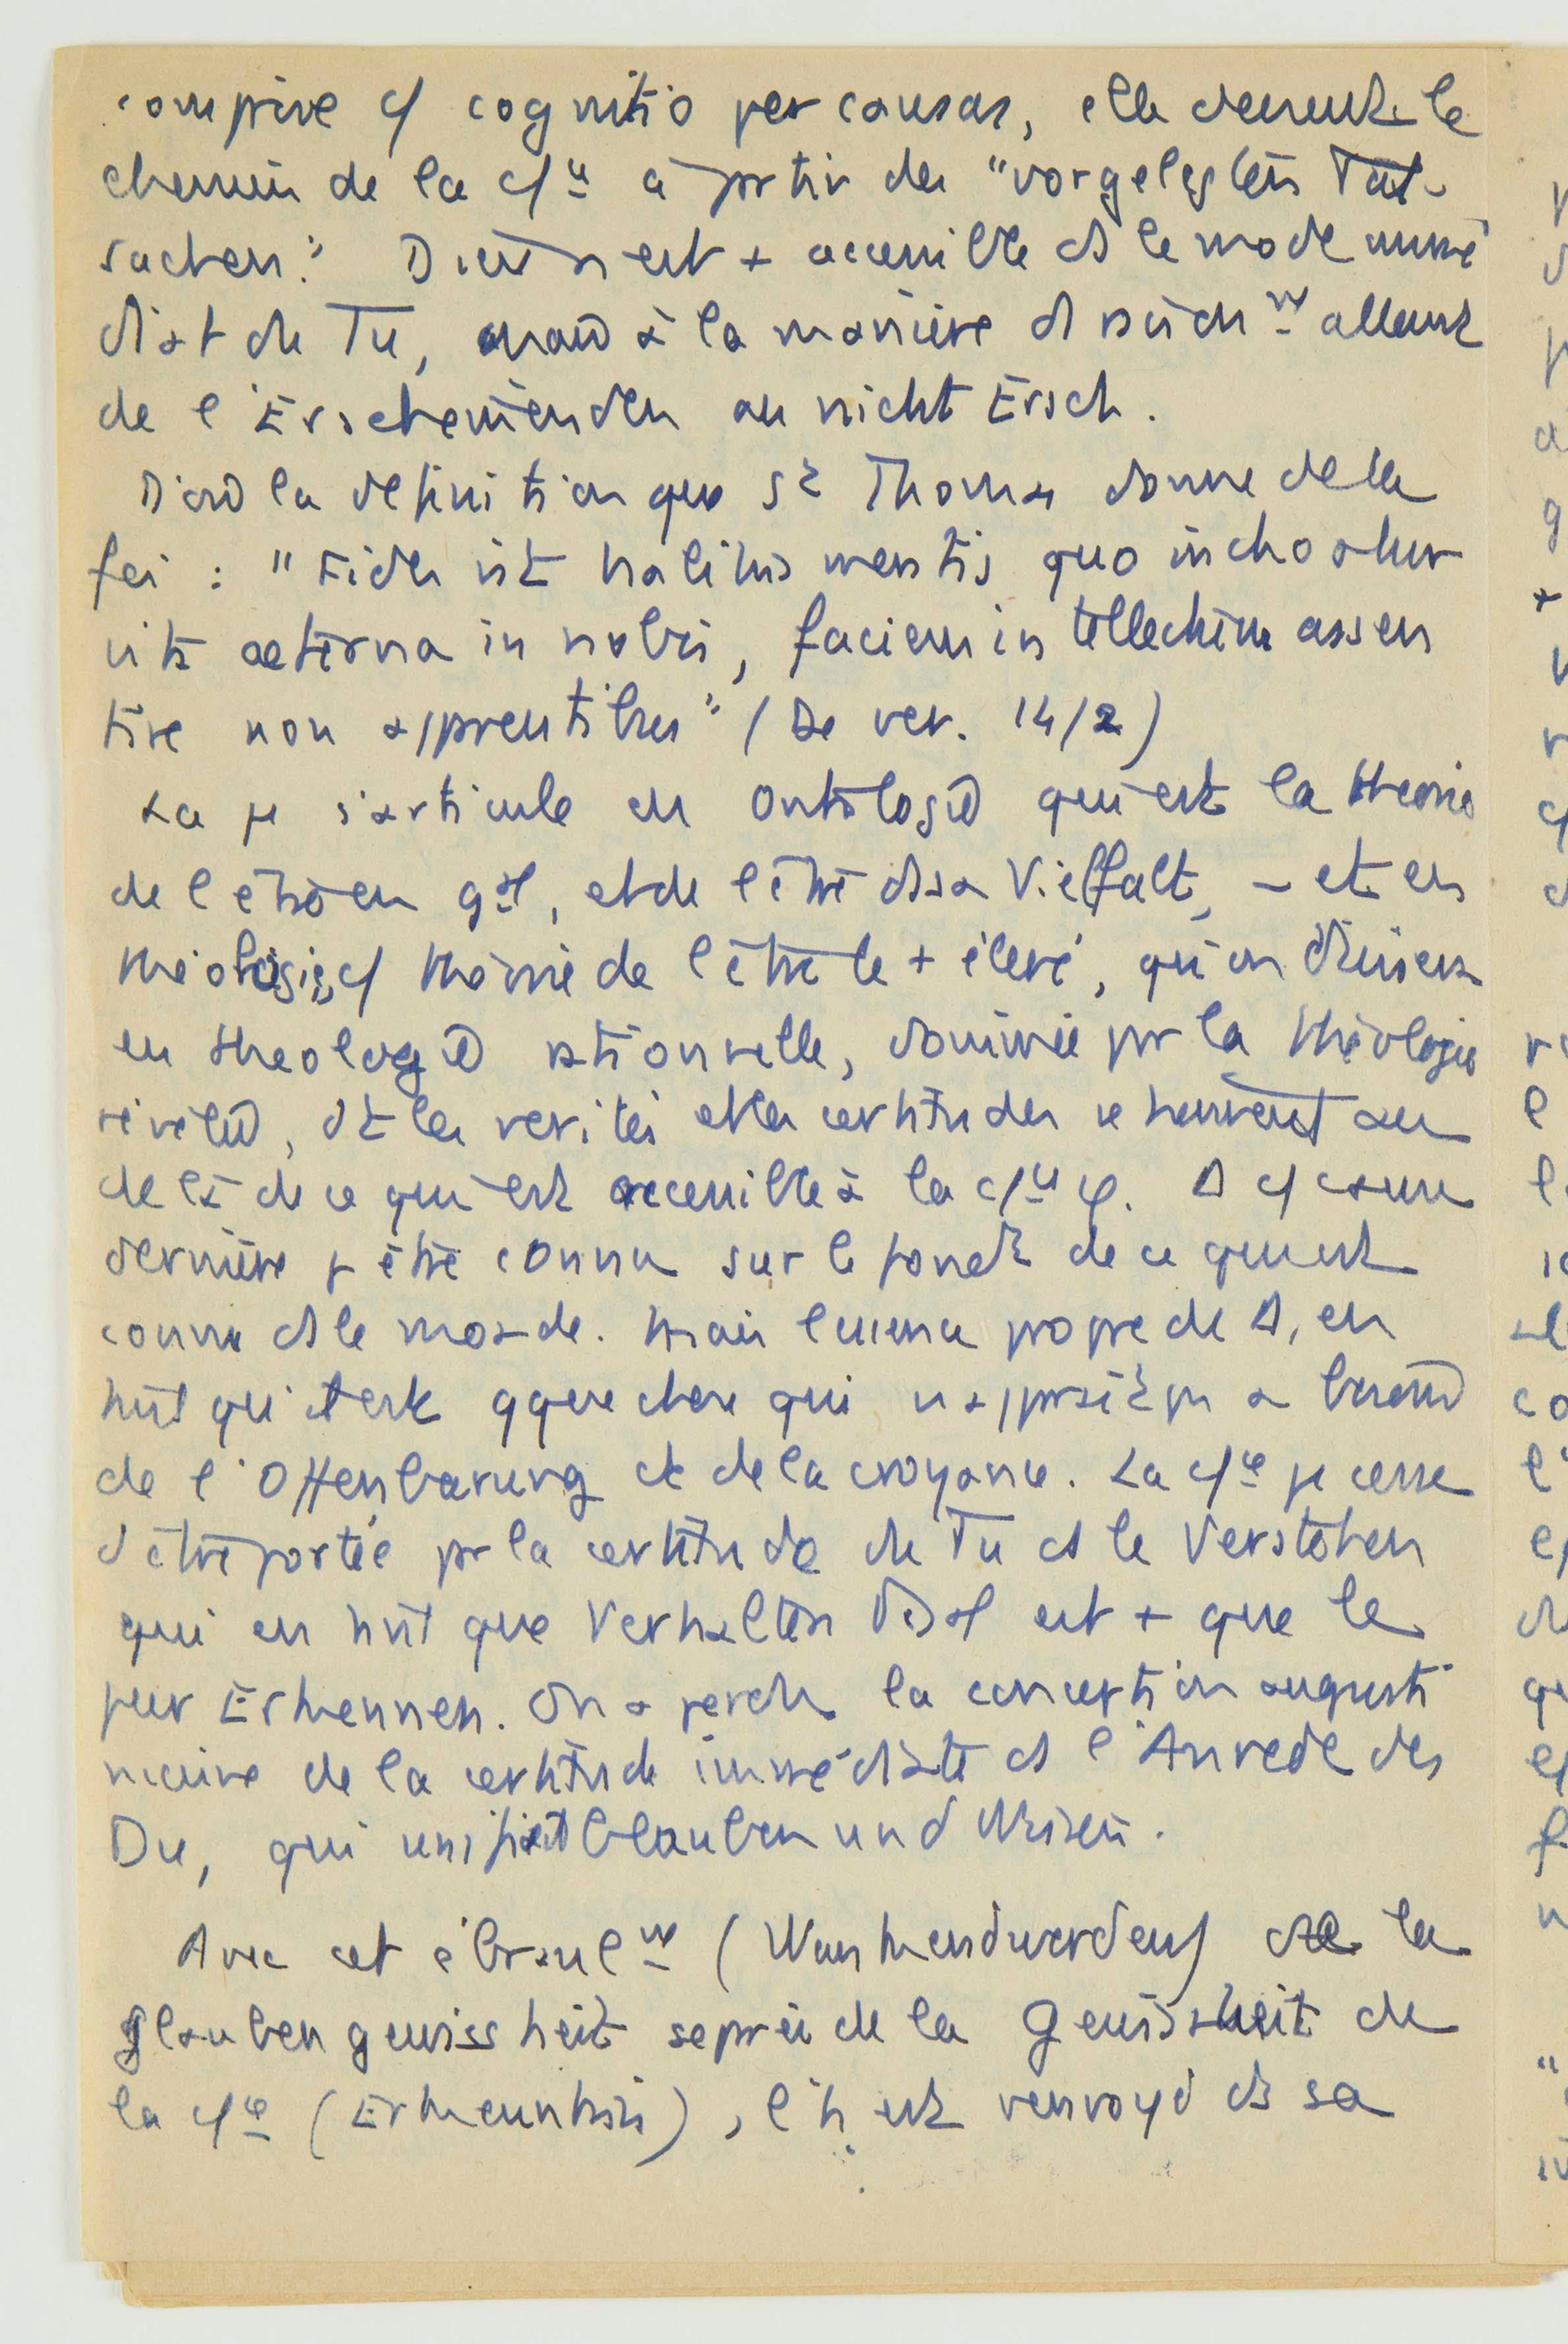 comprise c/ cognitio per causas, elle devient le
chemin de la c/ce à prtir des "vorgelegten Tat-
sachen." Dieu n'est + accessible ds le mode immé
diat du Tu, mais à la manière d'1 raison nt allant
de l'Erscheinenden au nicht Ersch.
D'où la définition que St Thomas donne de la
foi : "Fides est habitus mentis quo inchoatur
vita aeterna in nobis, faciens intellectum assen
tire non apparentibus" (De ver. 14/2)
La φ s'articule en Ontologie qui est la théorie
de l'être en gal, et de l'être ds sa Vielfalt, – et en
théologie, c/ théorie de l'être le + élevé, qu'on divisera
en théologie rationnelle, dominée pr la théologie
révélée, dt les vérités et les certitudes se trouvent au
delà de ce qui est accessible à la c/ce φ. D c/ cause
dernière p être connu sur le fondt de ce qui est
connu ds le monde. Mais l'essence propre de D, en
tant qu'il est qque chose qui n'apparaît pas a besoin
de l'Offenbarung et de la croyance. La c/ce φ cesse
d'être portée pr la certitude du Tu ds le Verstehen
qui en tant que Verhalten est + que le
pur Erkennen. On a perdu la conception augusti
nienne de la certitude immédiate ds l'Anrede des
Du, qui unifiait Glauben und Wissen.
Avec cet ébranlnt (Wankendwerden) de la
glaubengewissheit séprée de la Gewissheit de
la c/ce (Erkenntnis), l'h est renvoyé ds sa